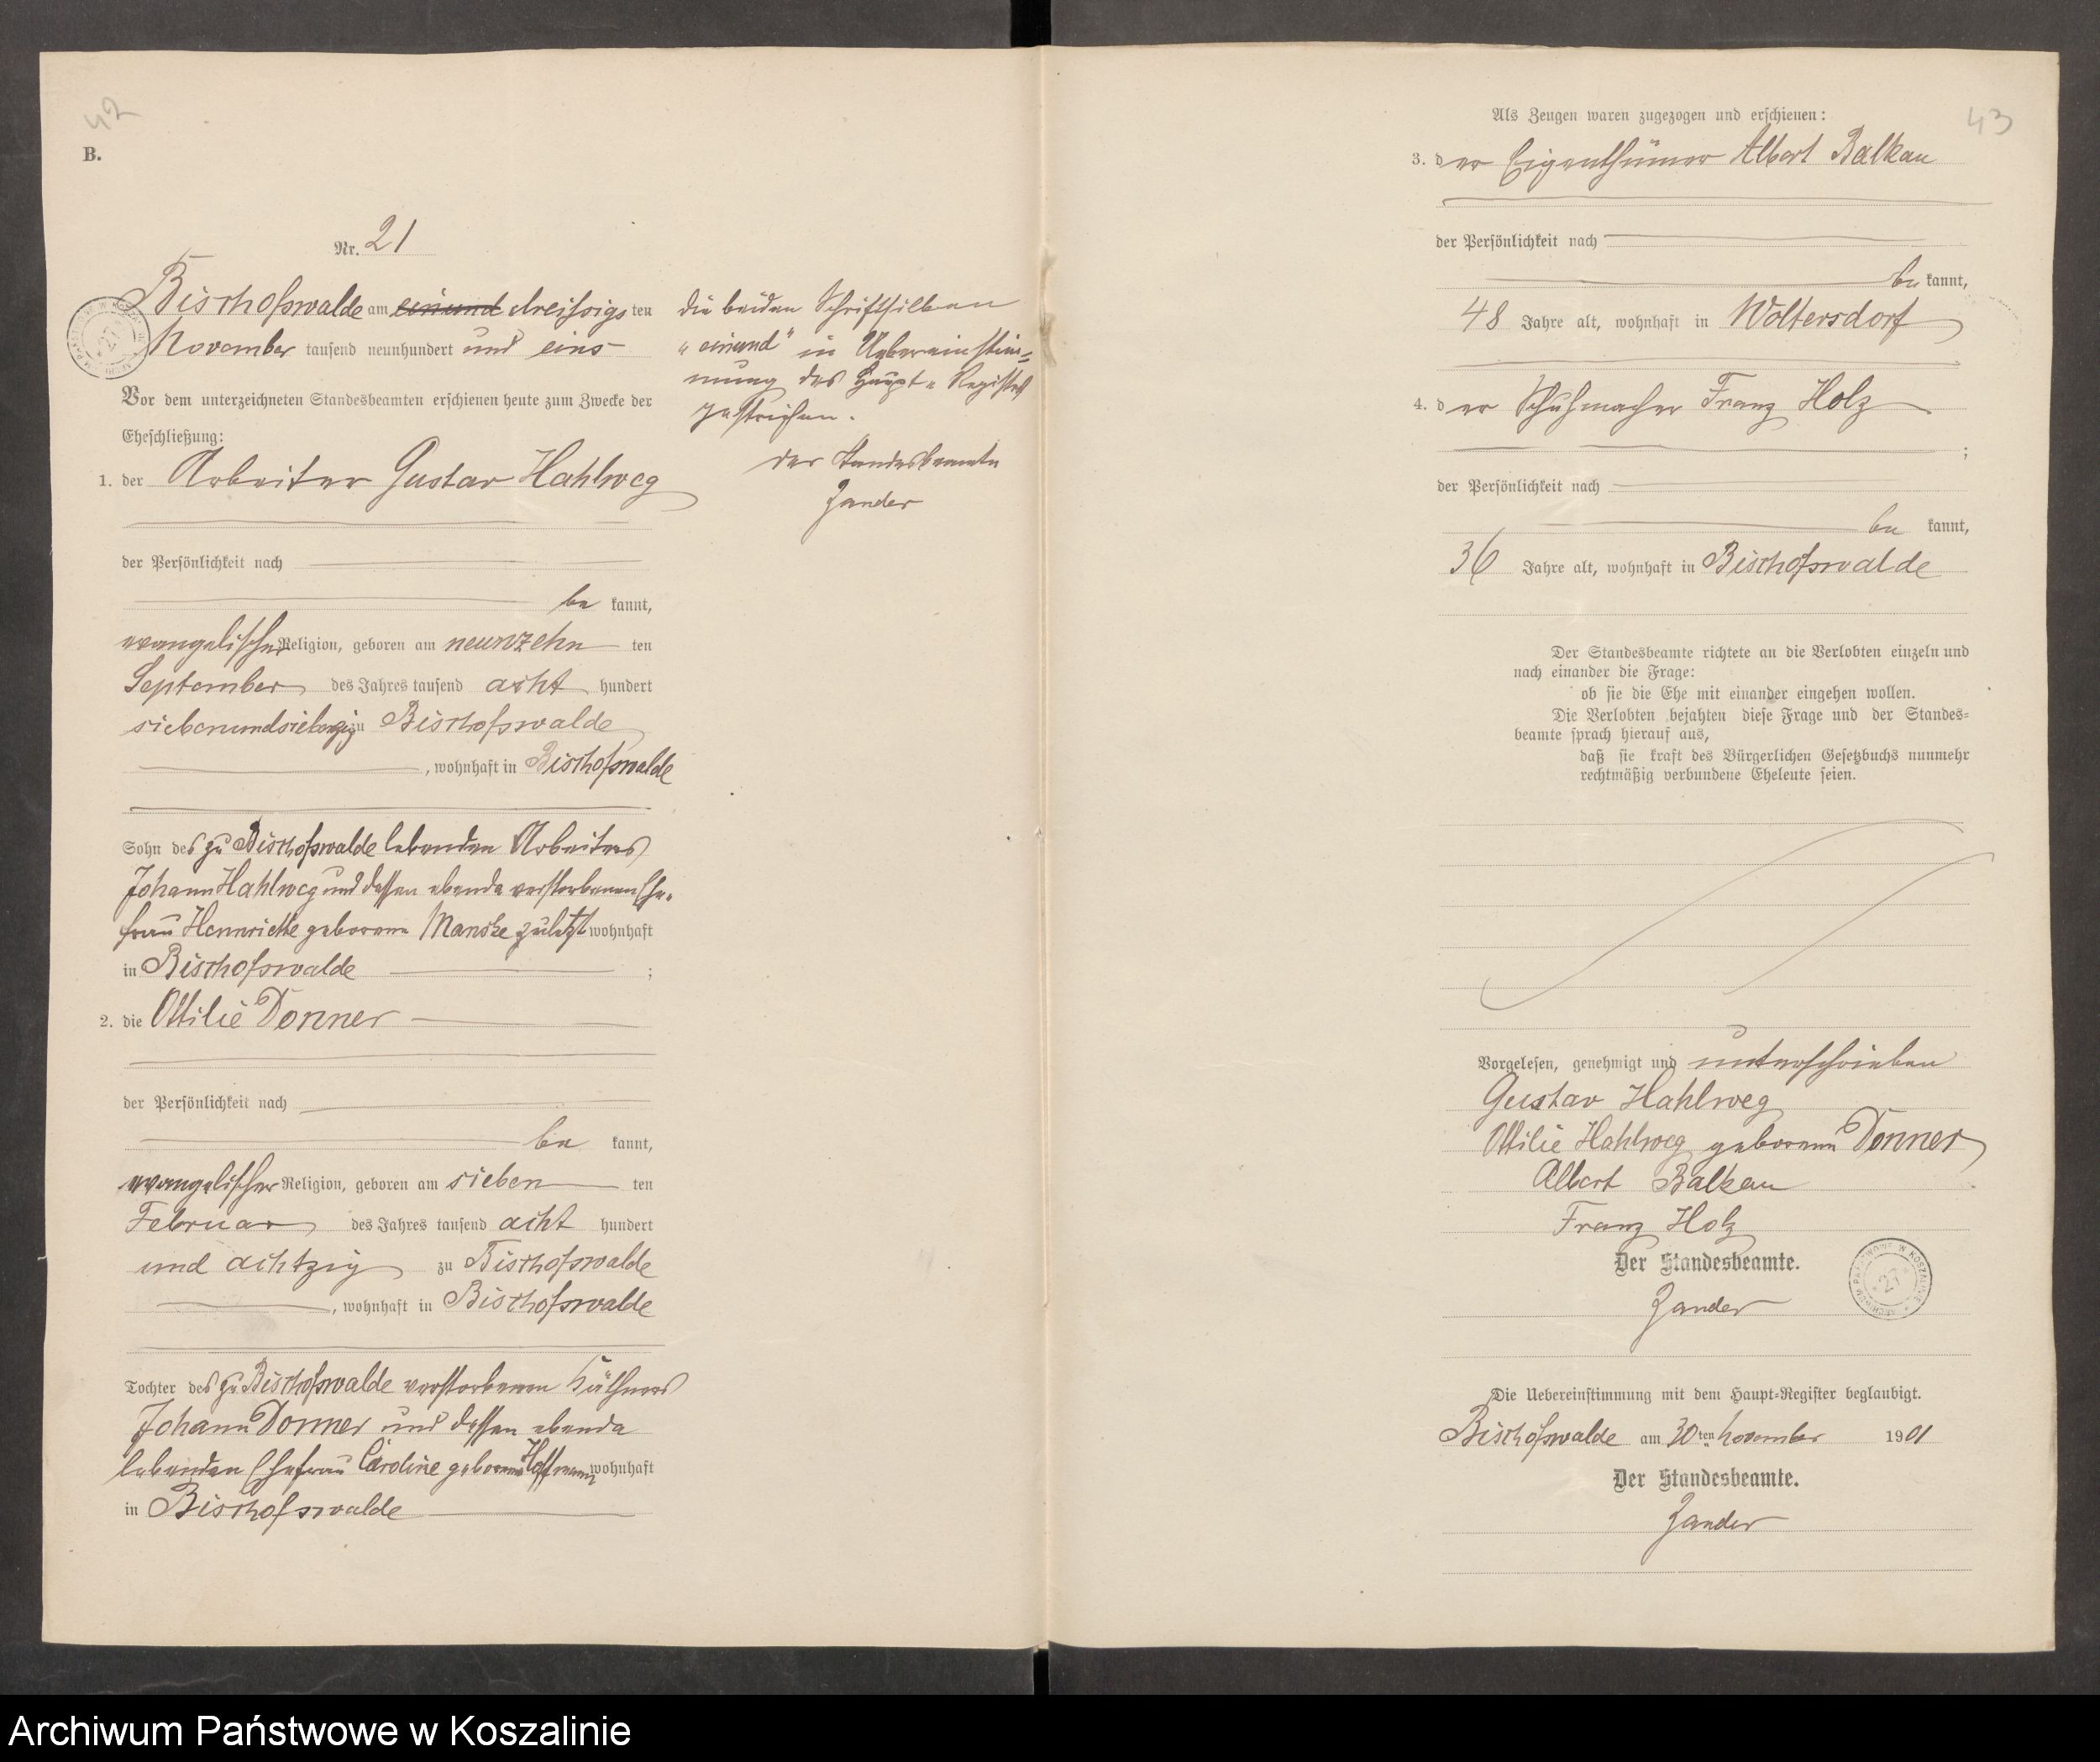 42
B.
Nr. 21
Bischofswalde am einund dreissigsten
November tausend neunhundert und eins
Vor dem unterzeichneten Standesbeamten erschienen heute zum Zwecke der
Eheschließung:
1. der Arbeiter Gustav Hahlweg
der Persönlichkeit nach
bekannt,
evangelischer Religion, geboren am neunzehnten
September des Jahres tausend achthundert
siebenundsiebenzig zu Bischofswalde
, wohnhaft in Bischofswalde
Sohn des zu Bischofswalde lebenden Arbeiters
Johann Hahlweg und dessen ebenda verstorbenen Ehe-
frau Hennriette geborene Manske zuletzt wohnhaft
in Bischofswalde ;
2. die Ottilie Donner
der Persönlichkeit nach
bekannt,
evangelischer Religion, geboren am siebenten
Februar des Jahres tausend achthundert
und achtzig zu Bischofswalde
, wohnhaft in Bischofswalde
Tochter des zu Bischofswalde verstorbenen Käthners
Johann Donner und dessen ebenda
lebenden Ehefrau Caroline geborene Hoffmann wohnhaft
in Bischofswalde
die beiden Schriftsilben
"einund" in Uebereinstim=
mung des Haupt=Registers
gestrichen.
Der Standesbeamte
Zander
43
Als Zeugen waren zugezogen und erschienen:
3. der Eigenthümer Albert Balkau
der Persönlichkeit nach
bekannt,
48 Jahre alt, wohnhaft in Woltersdorf
4. der Schuhmacher Franz Holz
;
der Persönlichkeit nach
bekannt,
36 Jahre alt, wohnhaft in Bischofswalde
Der Standesbeamte richtete an die Verlobten einzeln und
nach einander die Frage:
ob sie die Ehe mit einander eingehen wollen.
Die Verlobten bejahten diese Frage und der Standes=
beamte sprach hierauf aus,
daß sie kraft des Bürgerlichen Gesetzbuchs nunmehr
rechtmäßig verbundene Eheleute seien.
Vorgelesen, genehmigt und unterschrieben
Gustav Hahlweg
Ottilie Hahlweg geborene Donner
Albert Balkau
Franz Holz
Der Standesbeamte.
Zander
ARCHIWUM PAŃSTWOWE W KOSZALINIE
27
Die Uebereinstimmung mit dem Haupt=Register beglaubigt.
Bischofswalde am 30ten November 1901
Der Standesbeamte.
Zander
Archiwum Państwowe w Koszalinie